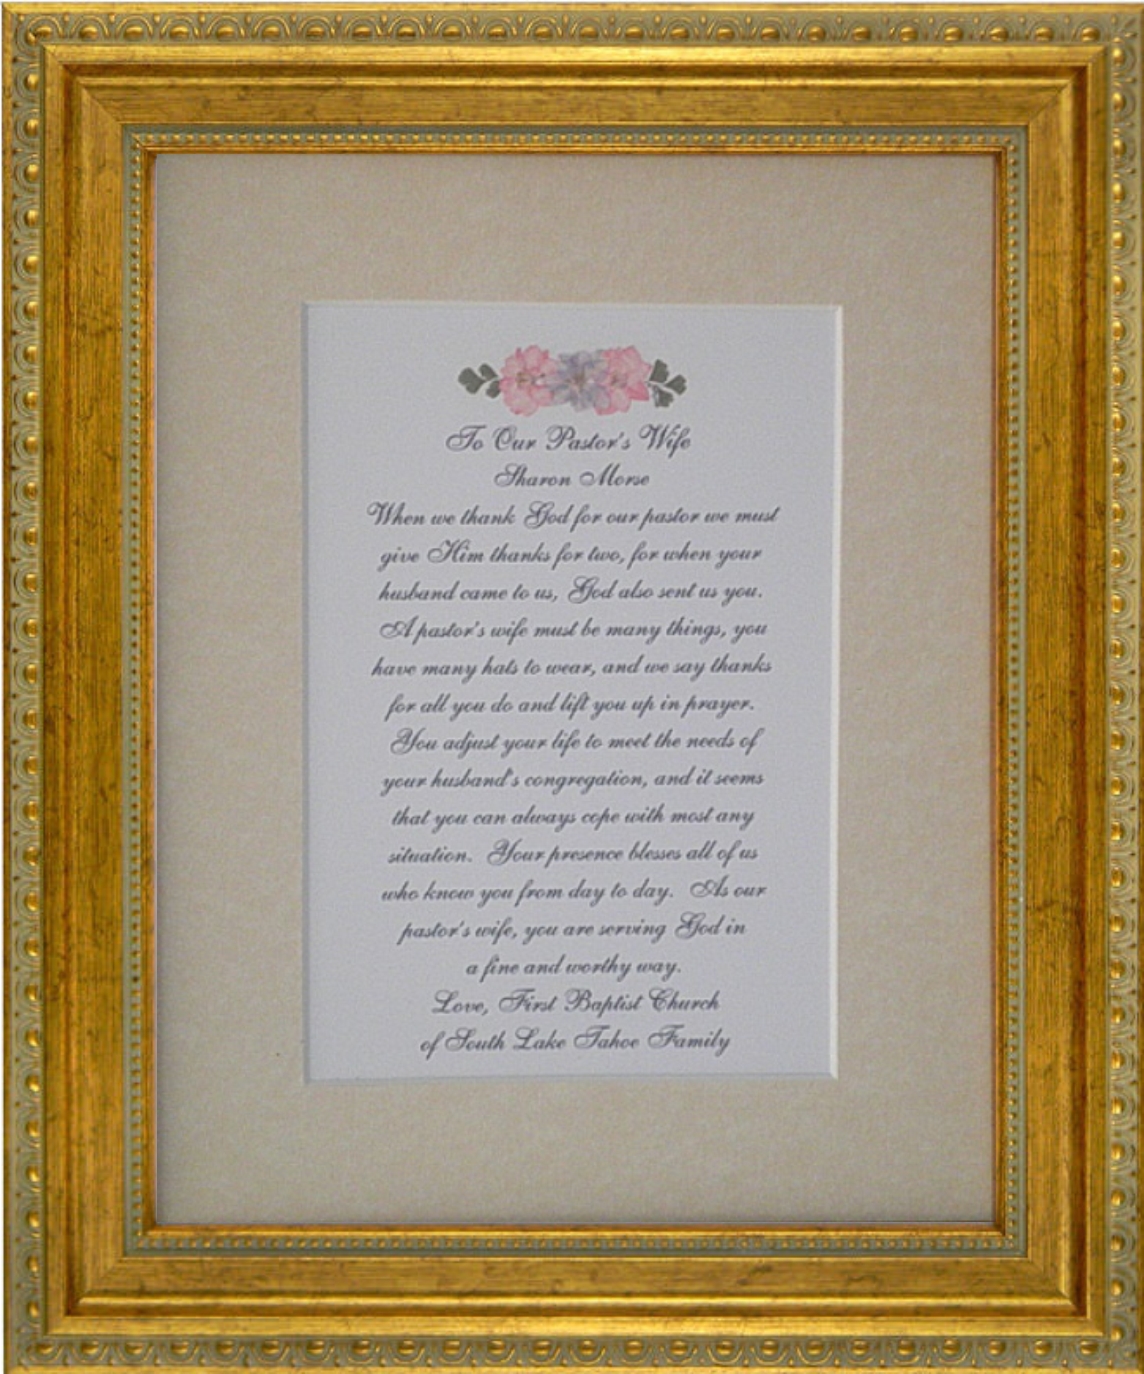 To Our Pastor's Wife
Sharon Morse
When we thank God for our pastor we must
give Him thanks for two, for when your
husband came to us, God also sent us you.
A pastor's wife must be many things, you
have many hats to wear, and we say thanks
for all you do and lift you up in prayer.
You adjust your life to meet the needs of
your husband's congregation, and it seems
that you can always cope with most any
situation.  Your presence blesses all of us
who know you from day to day.  As our
pastor's wife, you are serving God in
a fine and worthy way.
Love, First Baptist Church
of South Lake Tahoe Family